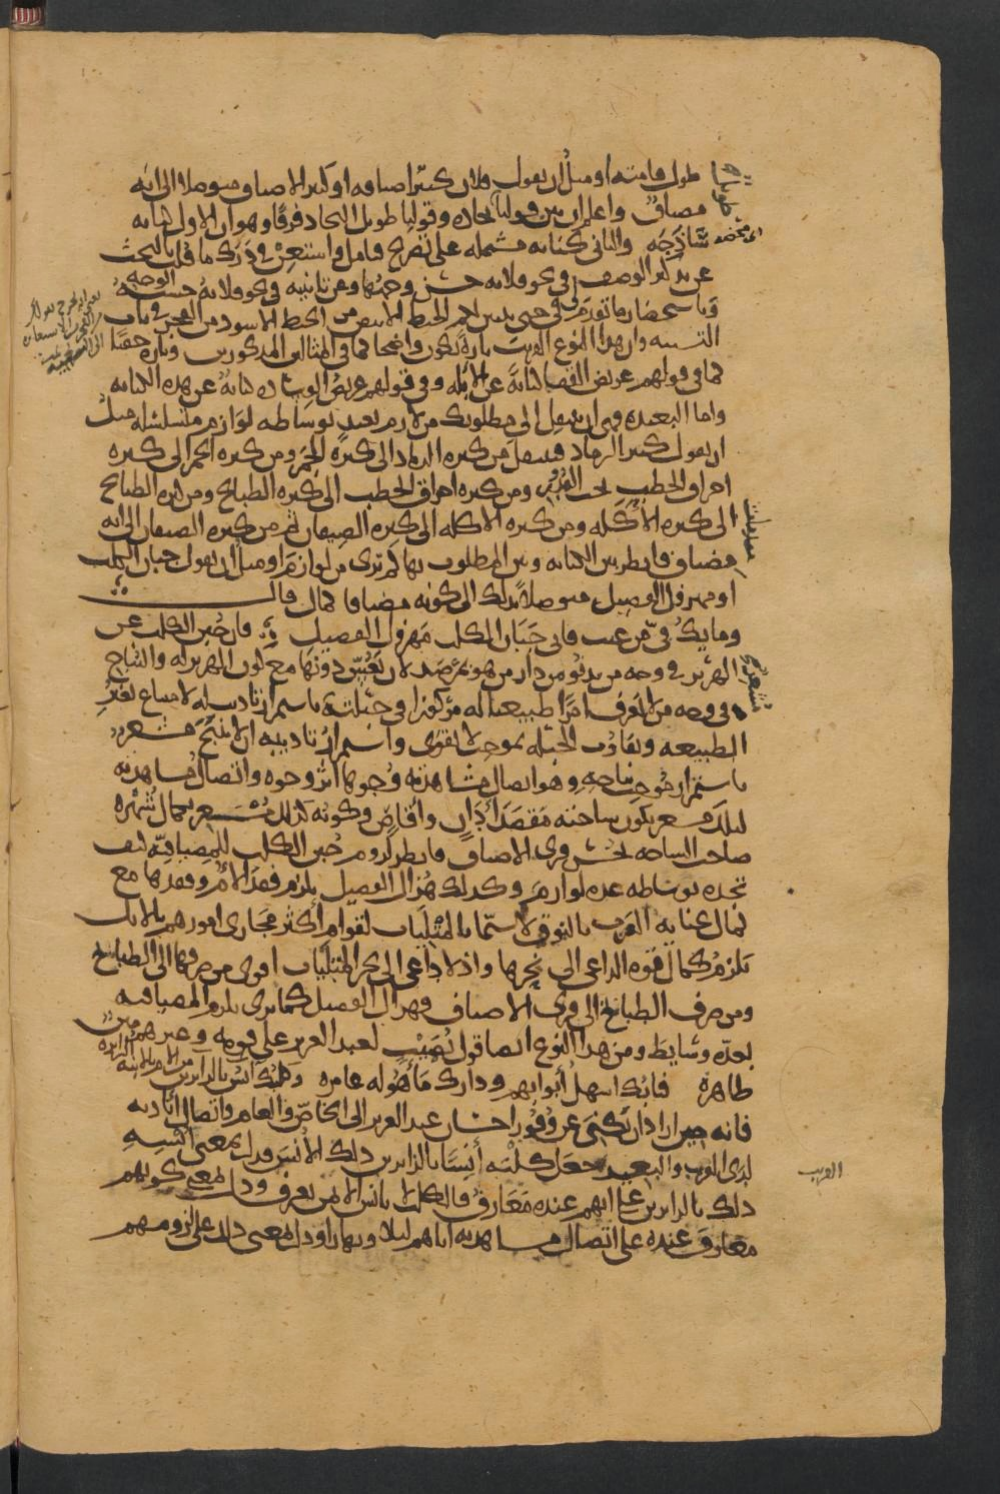 طول قامته او مثل ان يقول فلان كثير اضيافه او كثير الاضياف متوصلا الى انه
مضياف واعلم ان بين قولنا طويل نجاده وقولنا طويل النجاد فرقا وهو ان الاول كنايه
ساذجه والثاني كنايه مشتمله على تصريح فتامل واستعن في درك ما قلت بالبحث
عن تذكير الوصف في نحو فلانه حسن وجهها وعن تانيثه في نحو فلانه حسنة الوجه
وباستحضار ما تقدم لي في حتى يتبين لكم الخيط الابيض من الخيط الاسود من الفجر في باب
التشبيه وان هذا النوع القريب تارة يكون واضحا كما في المثالين المذكورين وتارة خفيا
كما في قولهم عريض القفا كناية عن الابله وفي قولهم عريض الوساده كناية عن هذه الكنايه
واما البعيده فهي ان تنتقل الى مطلوبك من لازم بعيد بوساطه لوازم متسلسله مثل
ان تقول كثير الرماد فتنتقل من كثره الرماد الى كثرة الجمر ومن كثره الجمر الى كثره
احراق الحطب تحت القدور ومن كثره احراق الحطب الى كثره الطبائخ ومن كثره الطبائخ
الى كثره الاكله ومن كثره الاكله الى كثره الضيفان ثم من كثره الضيفان الى انه
مضياف فانظر بين الكنايه وبين المطلوب بها كم ترى من لوازم او مثل ان تقول جبان الكلب
او مهزول الفصيل متوصلا بذلك الى كونه مضيافا كما قال
وما يك في من عيب فاني جبان الكلب مهزول الفصيل فان جبن الكلب عن
الهرير في وجه من يدنو من دار من هو بمرصد لان يعس دونها مع كون الهرير له والنباح
في وجه من لا يعرف امرا طبيعيا له مركوزا في جبلته مشعر باستمرار تاديب له لامتناع تغير
الطبيعه وتفاوت الجبله بموجب لا يقوى واستمرار تاديبه ان لا ينبح مشعر
باستمرار موجب نباحه وهو اتصال مشاهدته وجوها اثر وجوه واتصال مشاهدته
لتلك مشعر بكون ساحته مقصد ادان واقاص وكونه كذلك مشعر بكمال شهره
صاحب الساحه بحسن قرى الاضياف فانظر لزوم جبن الكلب للمضيافيه كيف
تجده بوساطه عده لوازم وكذلك هزال الفصيل يلزم فقد الام وفقدها مع
كمال عنايه العرب بالنوق لا سيما بالمتليات لقوام اكثر مجاري امورهم بالابل
يلزم كمال قوه الداعي الى نحرها واذ لا داعي الى نحر المتليات اقوى من صرفها الى الطبائخ
ومن صرف الطبائخ الى قرى الاضياف فهزال الفصيل كما ترى يلزم المضيافيه
بعده وسائط ومن هذا النوع ايضا قول نصيب لعبد العزيز على قومه وغيرهم منن
ظاهره فبابك اسهل ابوابهم ودارك ماهوله عامره وكلبك آنس بالزائرين من الام بالابنة الزائره
فانه حين اراد ان يكني عن وفور احسان عبد العزيز الى الخاص والعام واتصال اياديه
لدى القريب والبعيد جعل كلبه انيسا بالزائرين ذلك الانس فدل بمعنى انسه
ذلك بالزائرين على انهم عنده معارف فالكلب لا يانس الا بمن يعرف ودل بمعنى كونهم
معارف عنده على اتصال مشاهدته اياهم ليلا ونهارا ودل بمعنى ذلك على لزومهم
القريب